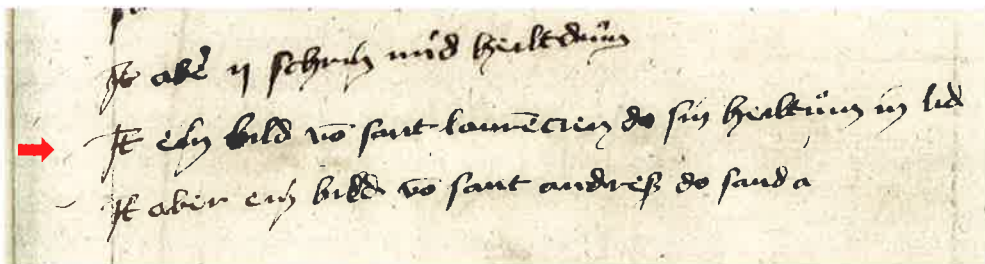 It abẽ ij schrin mid heiltdům
It ein bild võ sant laurẽcien do sin heiltům in lid
It aber ein bild võ sant andres do sand a